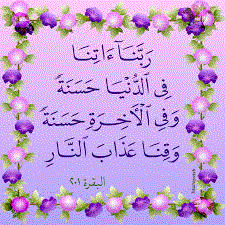 رَبَّنَآ ءَاتِنَا
فِى ٱلدُّنْيَا حَسَنَةً
وَفِى ٱلْأَخِرَةِ حَسَنَةً
وَقِنَا عَذَابَ ٱلنَّارِ
البقرة ٢٠١